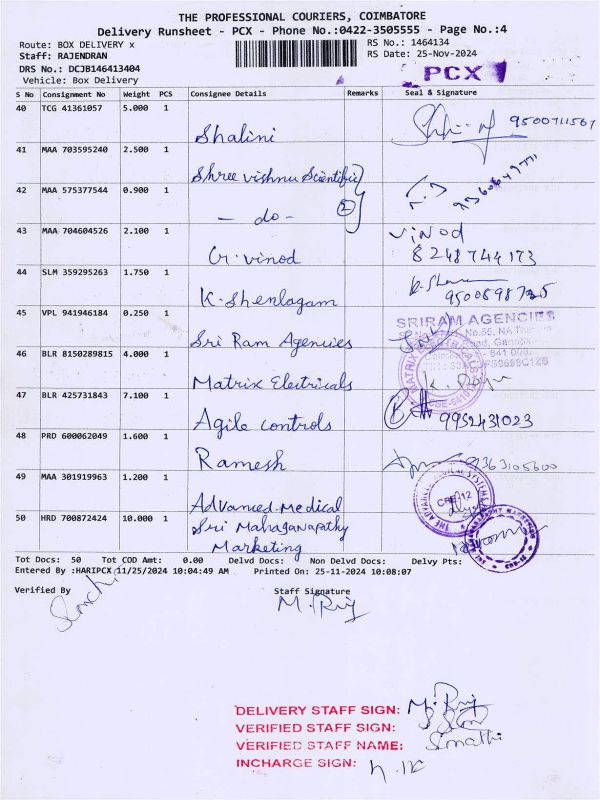 THE PROFESSIONAL COURIERS, COIMBATORE
Delivery Runsheet - PCX - Phone No.:0422-3505555 - Page No.:4
Route: BOX DELIVERY x
RS No.: 1464134
Staff: RAJENDRAN
RS Date: 25-Nov-2024
DRS No.: DCJB146413404
PCX
Vehicle: Box Delivery
S No Consignment No Weight PCS Consignee Details Remarks Seal & Signature
40 TCG 41361057 5.000 1
Shalini 9500711567
41 MAA 703595240 2.500 1
Shree vishnu Scientific
42 MAA 575377544 0.900 1
- do - 2
43 MAA 704604526 2.100 1
G. vinod
vinod
8248744173
44 SLM 359295263 1.750 1
K. Shenlagam
45 VPL 941946184 0.250 1
SRIRAM AGENCIES
Sri Ram Agencies
46 BLR 8150289815 4.000 1
Matrix Electricals
47 BLR 425731843 7.100 1
Agile controls 9952431023
48 PRD 600062049 1.600 1
Ramesh 9363105600
49 MAA 301919963 1.200 1
Advanced Medical
CBE-12
50 HRD 700872424 10.000 1
Sri Mahaganapathy
Marketing
Tot Docs: 50 Tot COD Amt: 0.00 Delvd Docs: Non Delvd Docs: Delvy Pts:
Entered By :HARIPCX 11/25/2024 10:04:49 AM Printed On: 25-11-2024 10:08:07
Verified By Staff Signature
DELIVERY STAFF SIGN:
VERIFIED STAFF SIGN:
VERIFIED STAFF NAME:
INCHARGE SIGN: